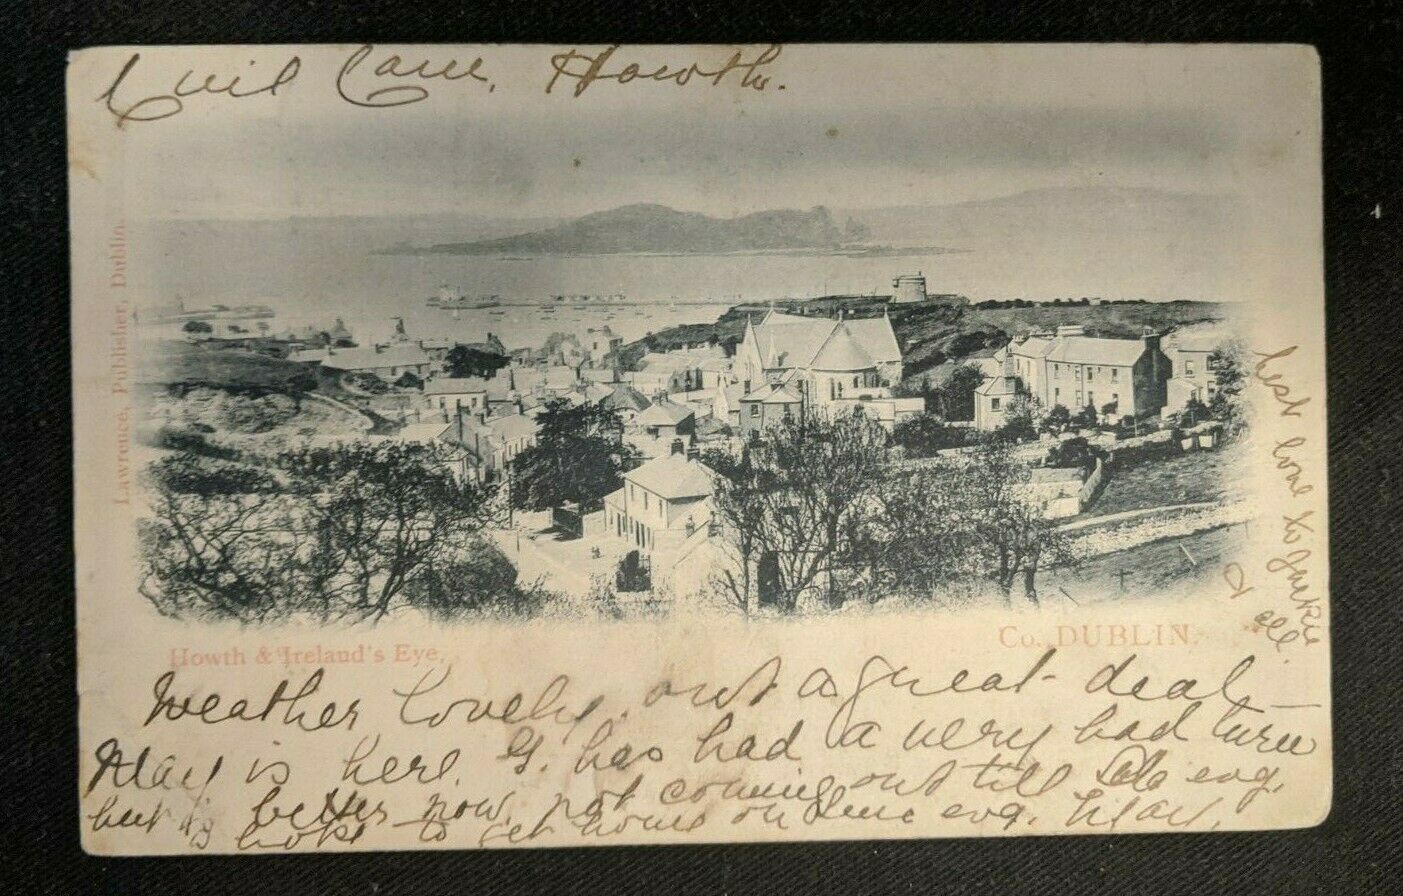 Howth.
Lawrence, Publisher, Dublin.
Howth & Ireland's Eye,
Co. DUBLIN.
best love to
& all
Weather lovely, out a great deal
May is here. G. has had a very bad turn
but is better now, not coming out till evg.
to get home on evg.